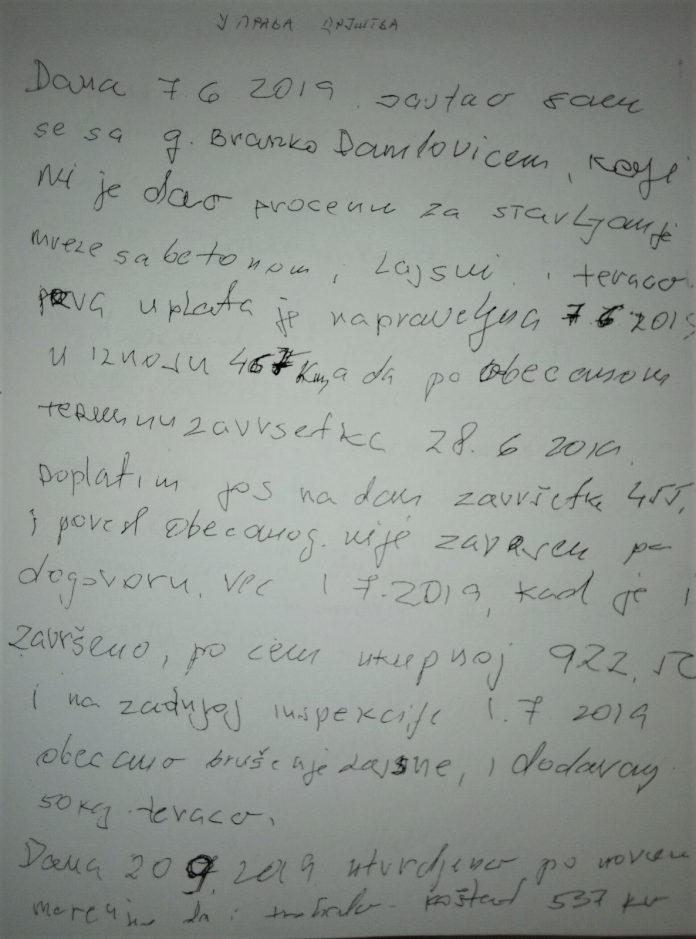 УПРАВА ДРУШТВА
Dana 7.6 2019. sastao sam
se sa g. Branko Danilovicem, koji
mi je dao procenu za stavljanje
mreze sa betonom, i Lajsni i teraco.
prva uplata je napravljena 7 6 2019
u iznosu 467 Km, a da po obecanom
terminu zavrsetka 28. 6 2019.
Doplatim jos na dan završetka 455,
i pored obecanog. nije zavrsen po
dogovoru, vec 1 7. 2019, kad je i
završeno, po cem ukupnoj 922,
i na zadnjoj inspekcije 1. 7 2019
obecano brušenje Lajsne, i dodavanj
50 kg. teraco.
Dana 20 9. 2019 utvrdjeno po novom
da i 537 km